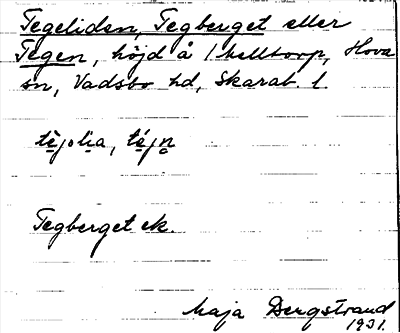 Tegeliden, Tegberget eller
Tegen, höjd å / Melltorp, Hova
sn, Vadsbo hd, Skarab. l.
tèjo lia, téjn
Tegberget ek.
Maja Bergstrand
1931.